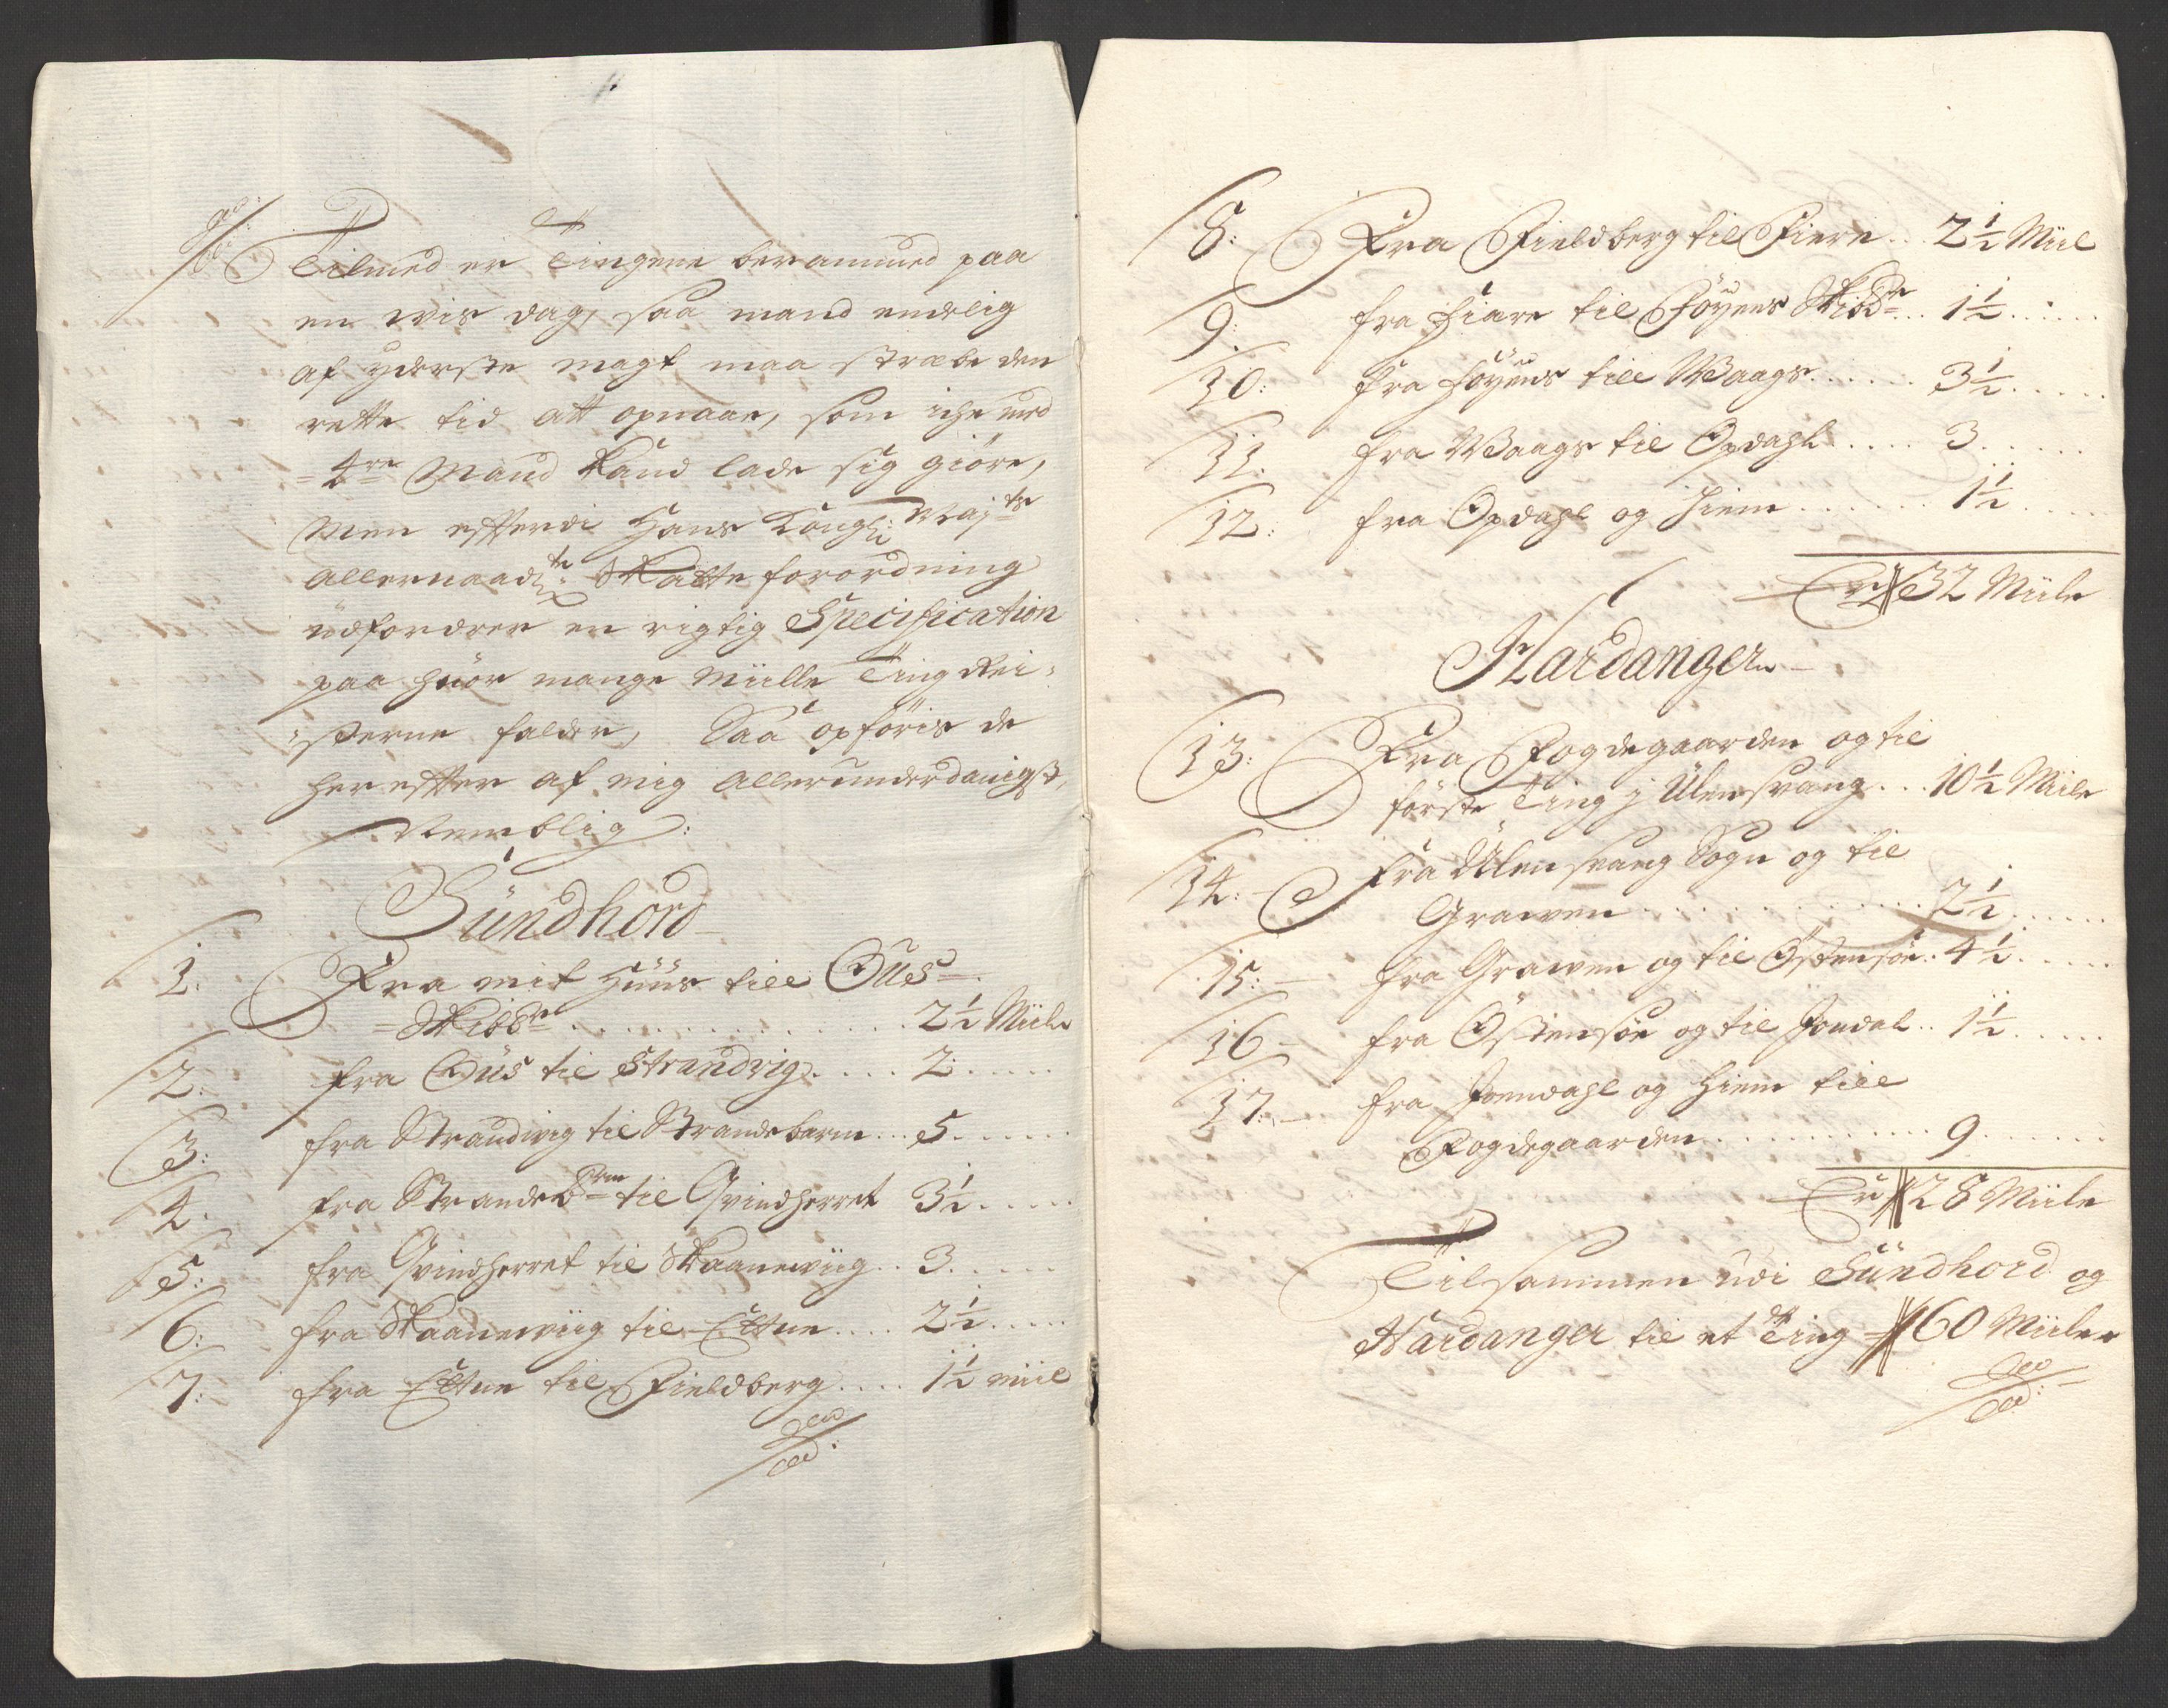 Tilmed er Tingene berammed paa
en vis dag, saa mand endelig
af yderste magt maa stræbe den
rette tid att opnaae, som iche med
=4re Mand Kand lade sig giöre,
Men efterdi Hans Kongl: Maj:ts
allernaadigste Skatte forordning
udfordrer en rigtig Specification
paa huor mange Miille Ting Rei=
=serne falder, Saa opföris de
her efter af mig allerunderdanigst,
Nemblig:
Sündhord
1: Fra mit Huus till Ous=
=Skibbr. . . . 2½ Miile
2: fra Ous til Strandvig. . . . 2. . . .
3: fra Strandvig til Strandebarm . . . 5. . . .
4. fra Strandebrm til Qvindherret 3½. . . .
5: fra Qvindherret til Skaanewiig . . 3. . . .
6: fra Skaanewiig til Ettne . . . . 2½. . . .
7: fra Ettne til Fieldberg . . . . 1½ miil
8: Fra Fieldberg til Fiere . . . 2½ Miil
9: fra Fiære til Föyens Skibbr . . 1½. . . .
10: fra Föyens till Waags . . . . . 3½. . . .
11: fra Waags til Opdahl . . . . 3. . . .
12: fra Opdahl og hiem . . . . . . 1½. . . .
Er 32 Miile
Hardanger
13: Fra Fogdegaarden og til
förste Ting j Ulensvang . . . 10½ Miile
14: fra Ulensvang Sogn og til
Grawen . . . . 2½. . . .
15: fra Grawen og til Östensöe . 4½. . . .
16 fra Östensöe og til Jondal . . 1½. . . .
17: fra Joendahl og hiem till
Fogdegaarden . . . . 9. . . .
Er 28 Miile
Tilsammen udi Sündhord og
Hardanger til et Ting 60 Miile